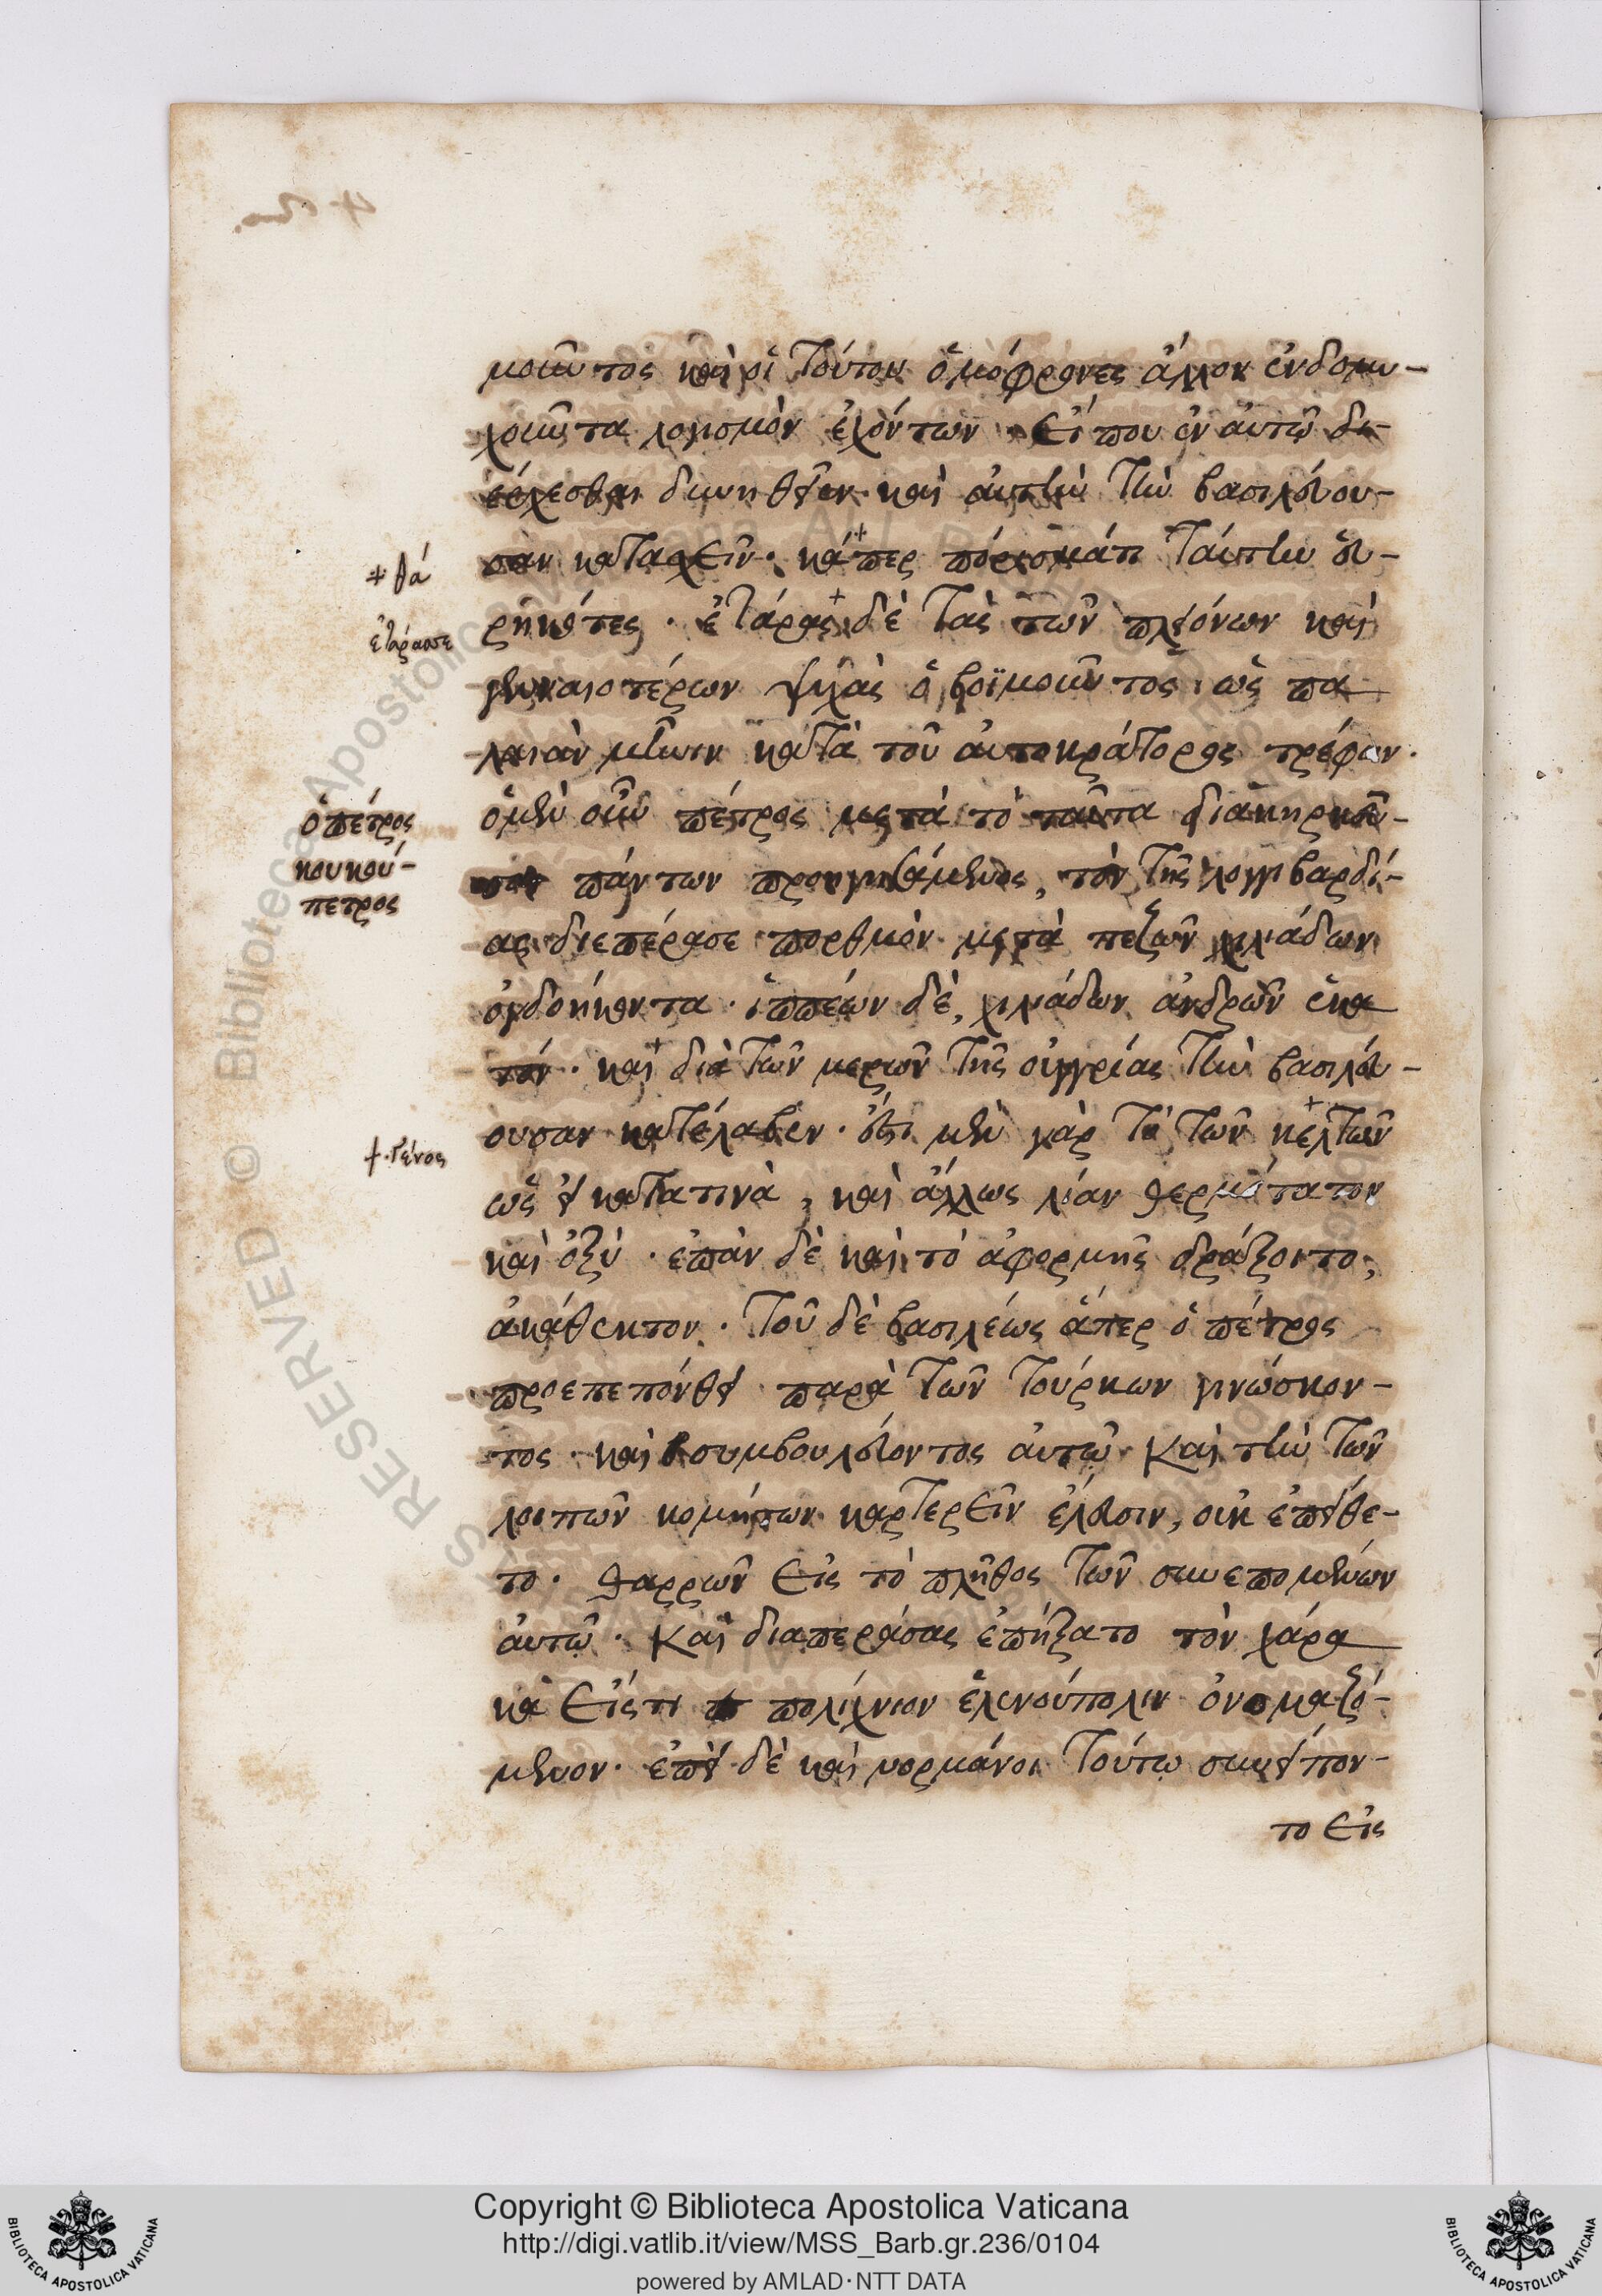 μοῦντος καὶ οἱ τούτου ὁμόφρονες ἄλλον ἐνδομυ-
χοῦντα λογισμὸν ἐχόντων. Εἴ που ἐν αὐτῷ δι-
έρχεσθαι δυνηθεῖεν καὶ αὐτὴν τὴν βασιλεύου-
σαν κατασχεῖν. κά+περ πόρισμάτι ταύτην εὑ-
ρηκότες. ἐτάρασ+ δὲ τὰς τῶν πλειόνων καὶ
γενναιοτέρων ψυχὰς ὁ βοϊμοῦντος. ὡς πα
λαιὰν μῆνιν κατὰ τοῦ αὐτοκράτορος τρέφων.
ὁ μὲν οὖν πέτρος μετὰ τὸ ταῦτα διακηρυκεῦ-
σαι πάντων προηγησάμενος, τὸν τῆς λογγιβαρδί-
ας διεπέρασε πορθμὸν μετὰ πεζῶν χιλιάδων
ὀγδοήκοντα. ἱππέων δὲ, χιλιάδων ἀνδρῶν ἑκα
τόν. καὶ διὰ τῶν μερῶν τῆς οὐγγρίας τὴν βασιλεύ-
ουσαν κατέλαβεν. ἔστι μὲν γὰρ τὸ τῶν κελτῶν+
ὡς εἰκατατινὰ, καὶ ἄλλως λίαν θερμότατον
καὶ ὀξύ. ἐπὰν δὲ καὶ τὸ ἀφορμῆς δράξοιτο,
ἀκάθεκτον. Τοῦ δὲ βασιλέως ἅπερ ὁ πέτρος
προεπεπόνθει παρὰ τῶν τούρκων γινώσκον-
τος. καὶ συμβουλεύοντος αὐτῷ καὶ τὴν τῶν
λοιπῶν κομήτων καρτερεῖν ἔλευσιν, οὐκ ἐπείθε-
το. θαρρῶν εἰς τὸ πλῆθος τῶν συνεπομένων
αὐτῷ. Καὶ διαπεράσας ἐπήξατο τὸν χάρα
κα εἴς τι πολίχνιον ἑλενούπολιν ὀνομαζό-
μενον. ἐπεὶ δὲ καὶ νορμάνοι τούτῳ συνείπον-
το εἰς
+ θά
ἐτάρασσε
ὁ πέτρος
κουκού-
πετρος
+. γένος
Copyright © Biblioteca Apostolica Vaticana
http://digi.vatlib.it/view/MSS_Barb.gr.236/0104
powered by AMLAD·NTT DATA